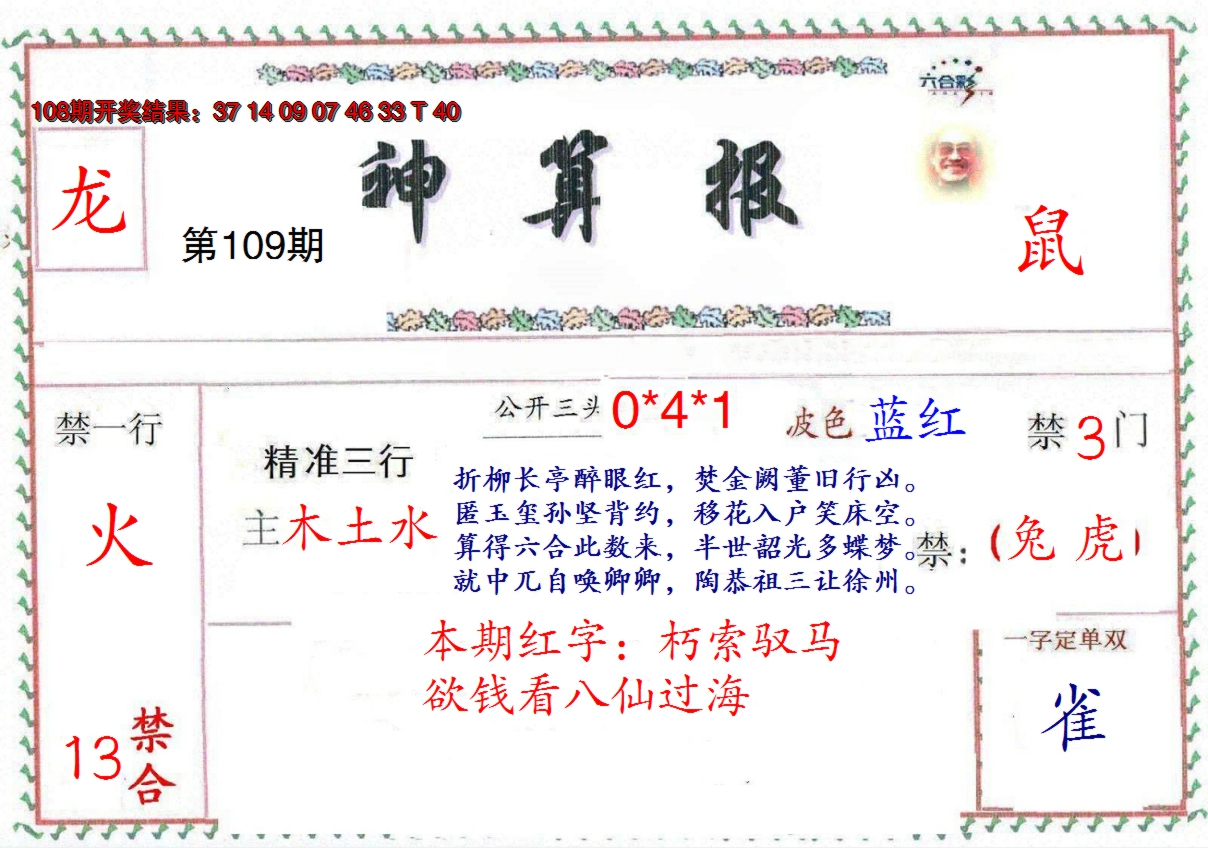 六合彩
108期开奖结果：37 14 09 07 46 33 T 40
龙
神算报
第109期
鼠
禁一行
火
13禁合
精准三行
主木土水
公开三头0*4*1
波色 蓝红
禁3门
折柳长亭醉眼红，焚金阙董旧行凶。
匿玉玺孙坚背约，移花入户笑床空。
算得六合此数来，半世韶光多蝶梦。
就中兀自唤卿卿，陶恭祖三让徐州。
禁：（兔 虎）
本期红字：朽索驭马
欲钱看八仙过海
一字定单双
雀